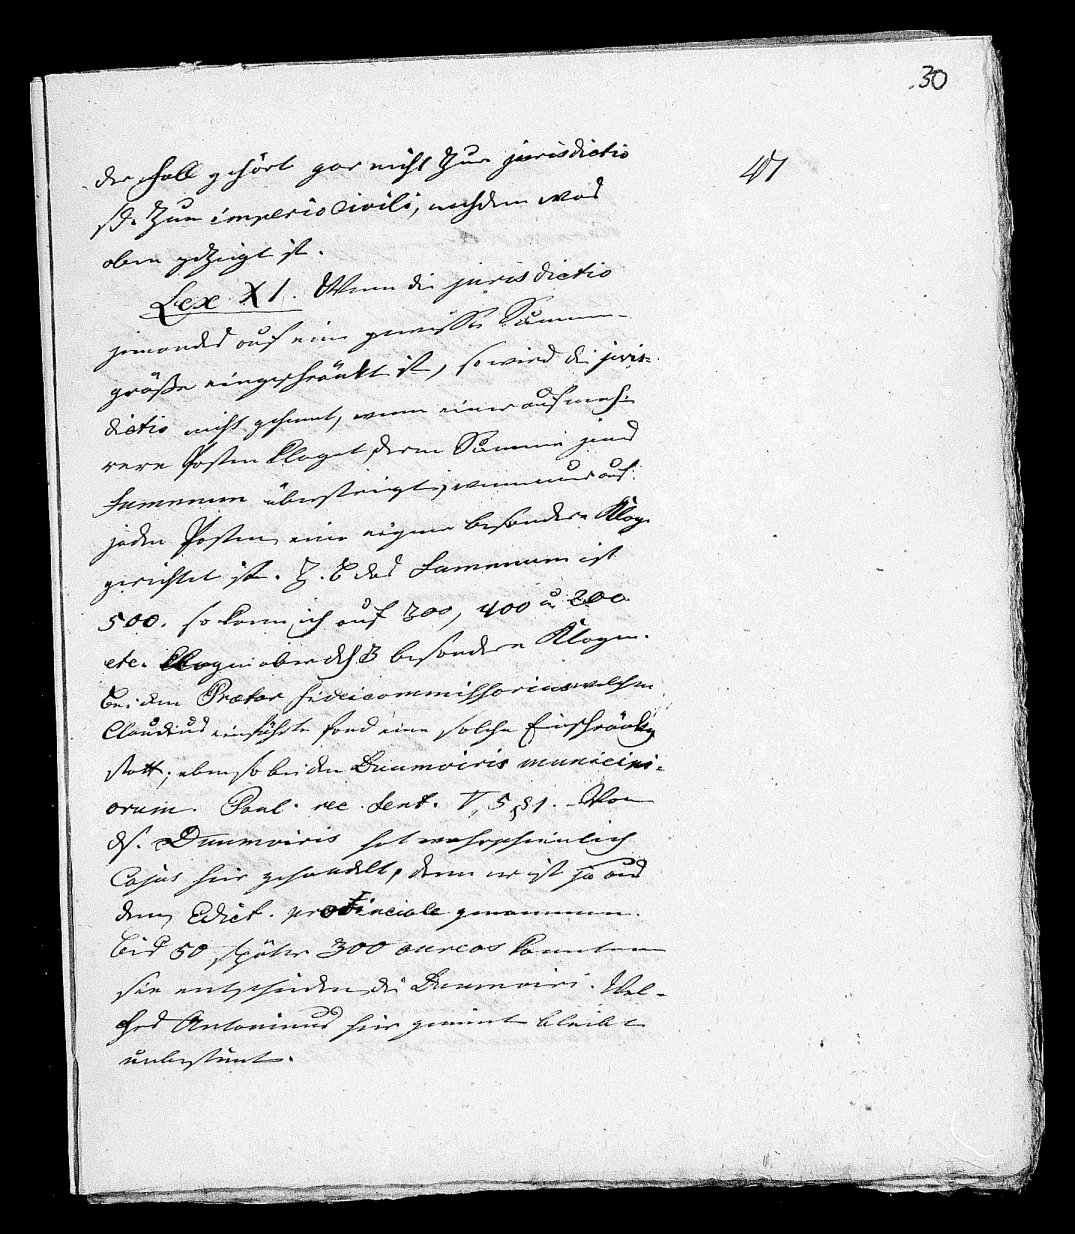 30
47
der Fall gehört gar nicht zur jurisdictio
sd. zum imperio civili, nachdem was
oben gezeigt ist.
Lex XI. Wenn die jurisdictio
jemandes auf eine gewisse Summen-
größe eingeschränkt ist, so wird die juris-
dictio nicht gehemt, wenn einer auf meh-
rere Posten klaget, deren Summe jenes
Summum übersteigt, wenn nur auf
jeden Posten eine eigene besondere Klage
gerichtet ist. Z. E. das Summum ist
500. so kann ich auf 300, 400 u. 200
etc. klagen aber durch 3 besondere Klagen.
Bei dem Praetor fideicommissarius welchen
Claudius einführte fand eine solche Einschränkg
statt; eben so bei den Duumviris municipi-
orum. Paul. rec. Sent. V, 5 § 1. Von
ds. Duumviris hat wahrscheinlich
Cajus hier gehandelt, denn er ist ja aus
dem Edict. provinciale genommen.
Bis 50, später 300 aureos konnten
sie entscheiden die Duumviri. Wel-
ches Antoninus hier gemeint bleibt
unbestimt.